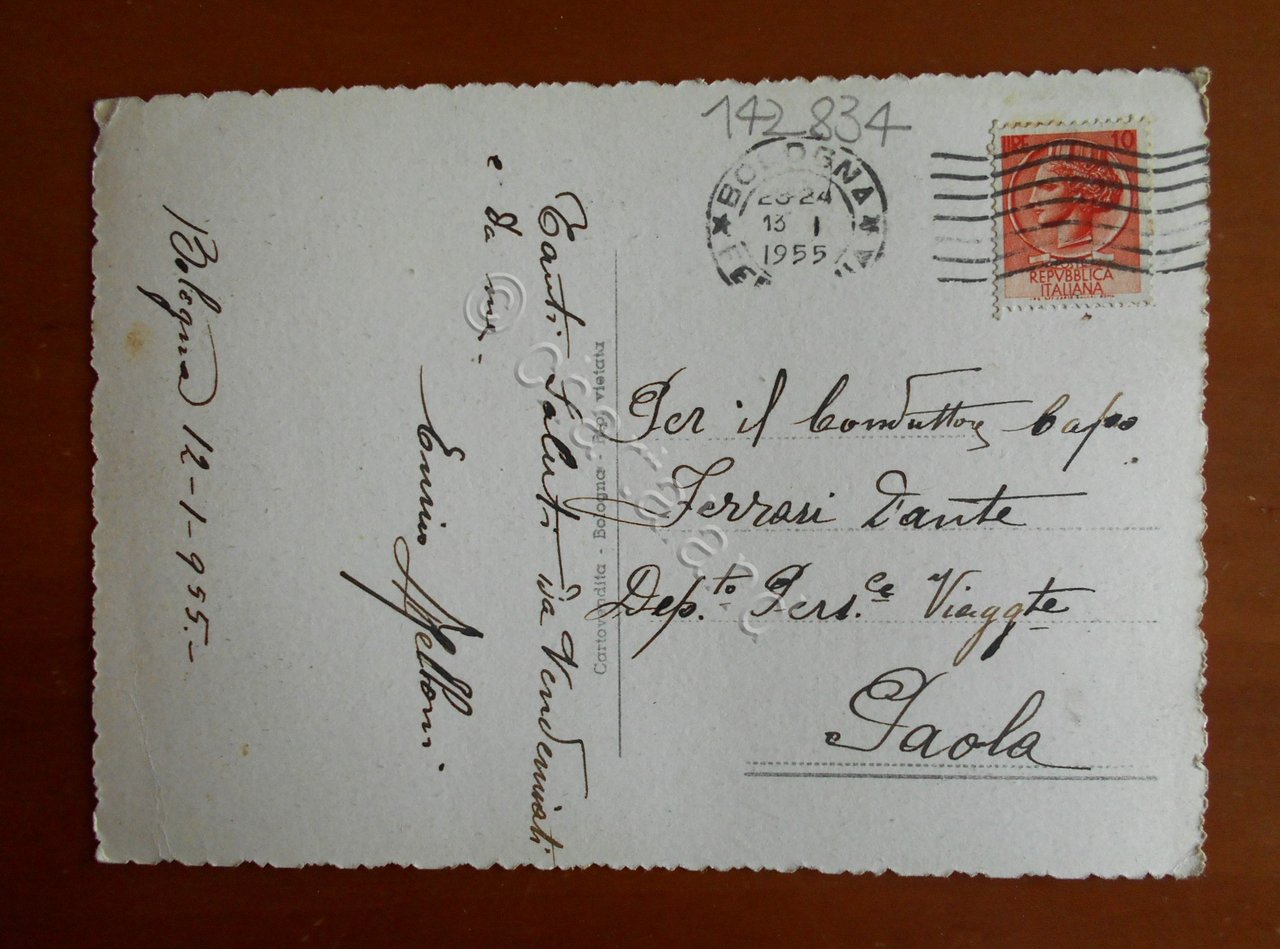 Bologna 12-1-955.-
Tanti Saluti da Vendemiati
e da me.-
Ennio Melloni
Cartovendita - Bologna - vietata
142834
BOLOGNA
23-24
13 I
1955
LIRE 10
REPVBBLICA
ITALIANA
Per il Conduttore Capo
Ferrari Dante
Dep.to Pers.le Viaggte
Paola